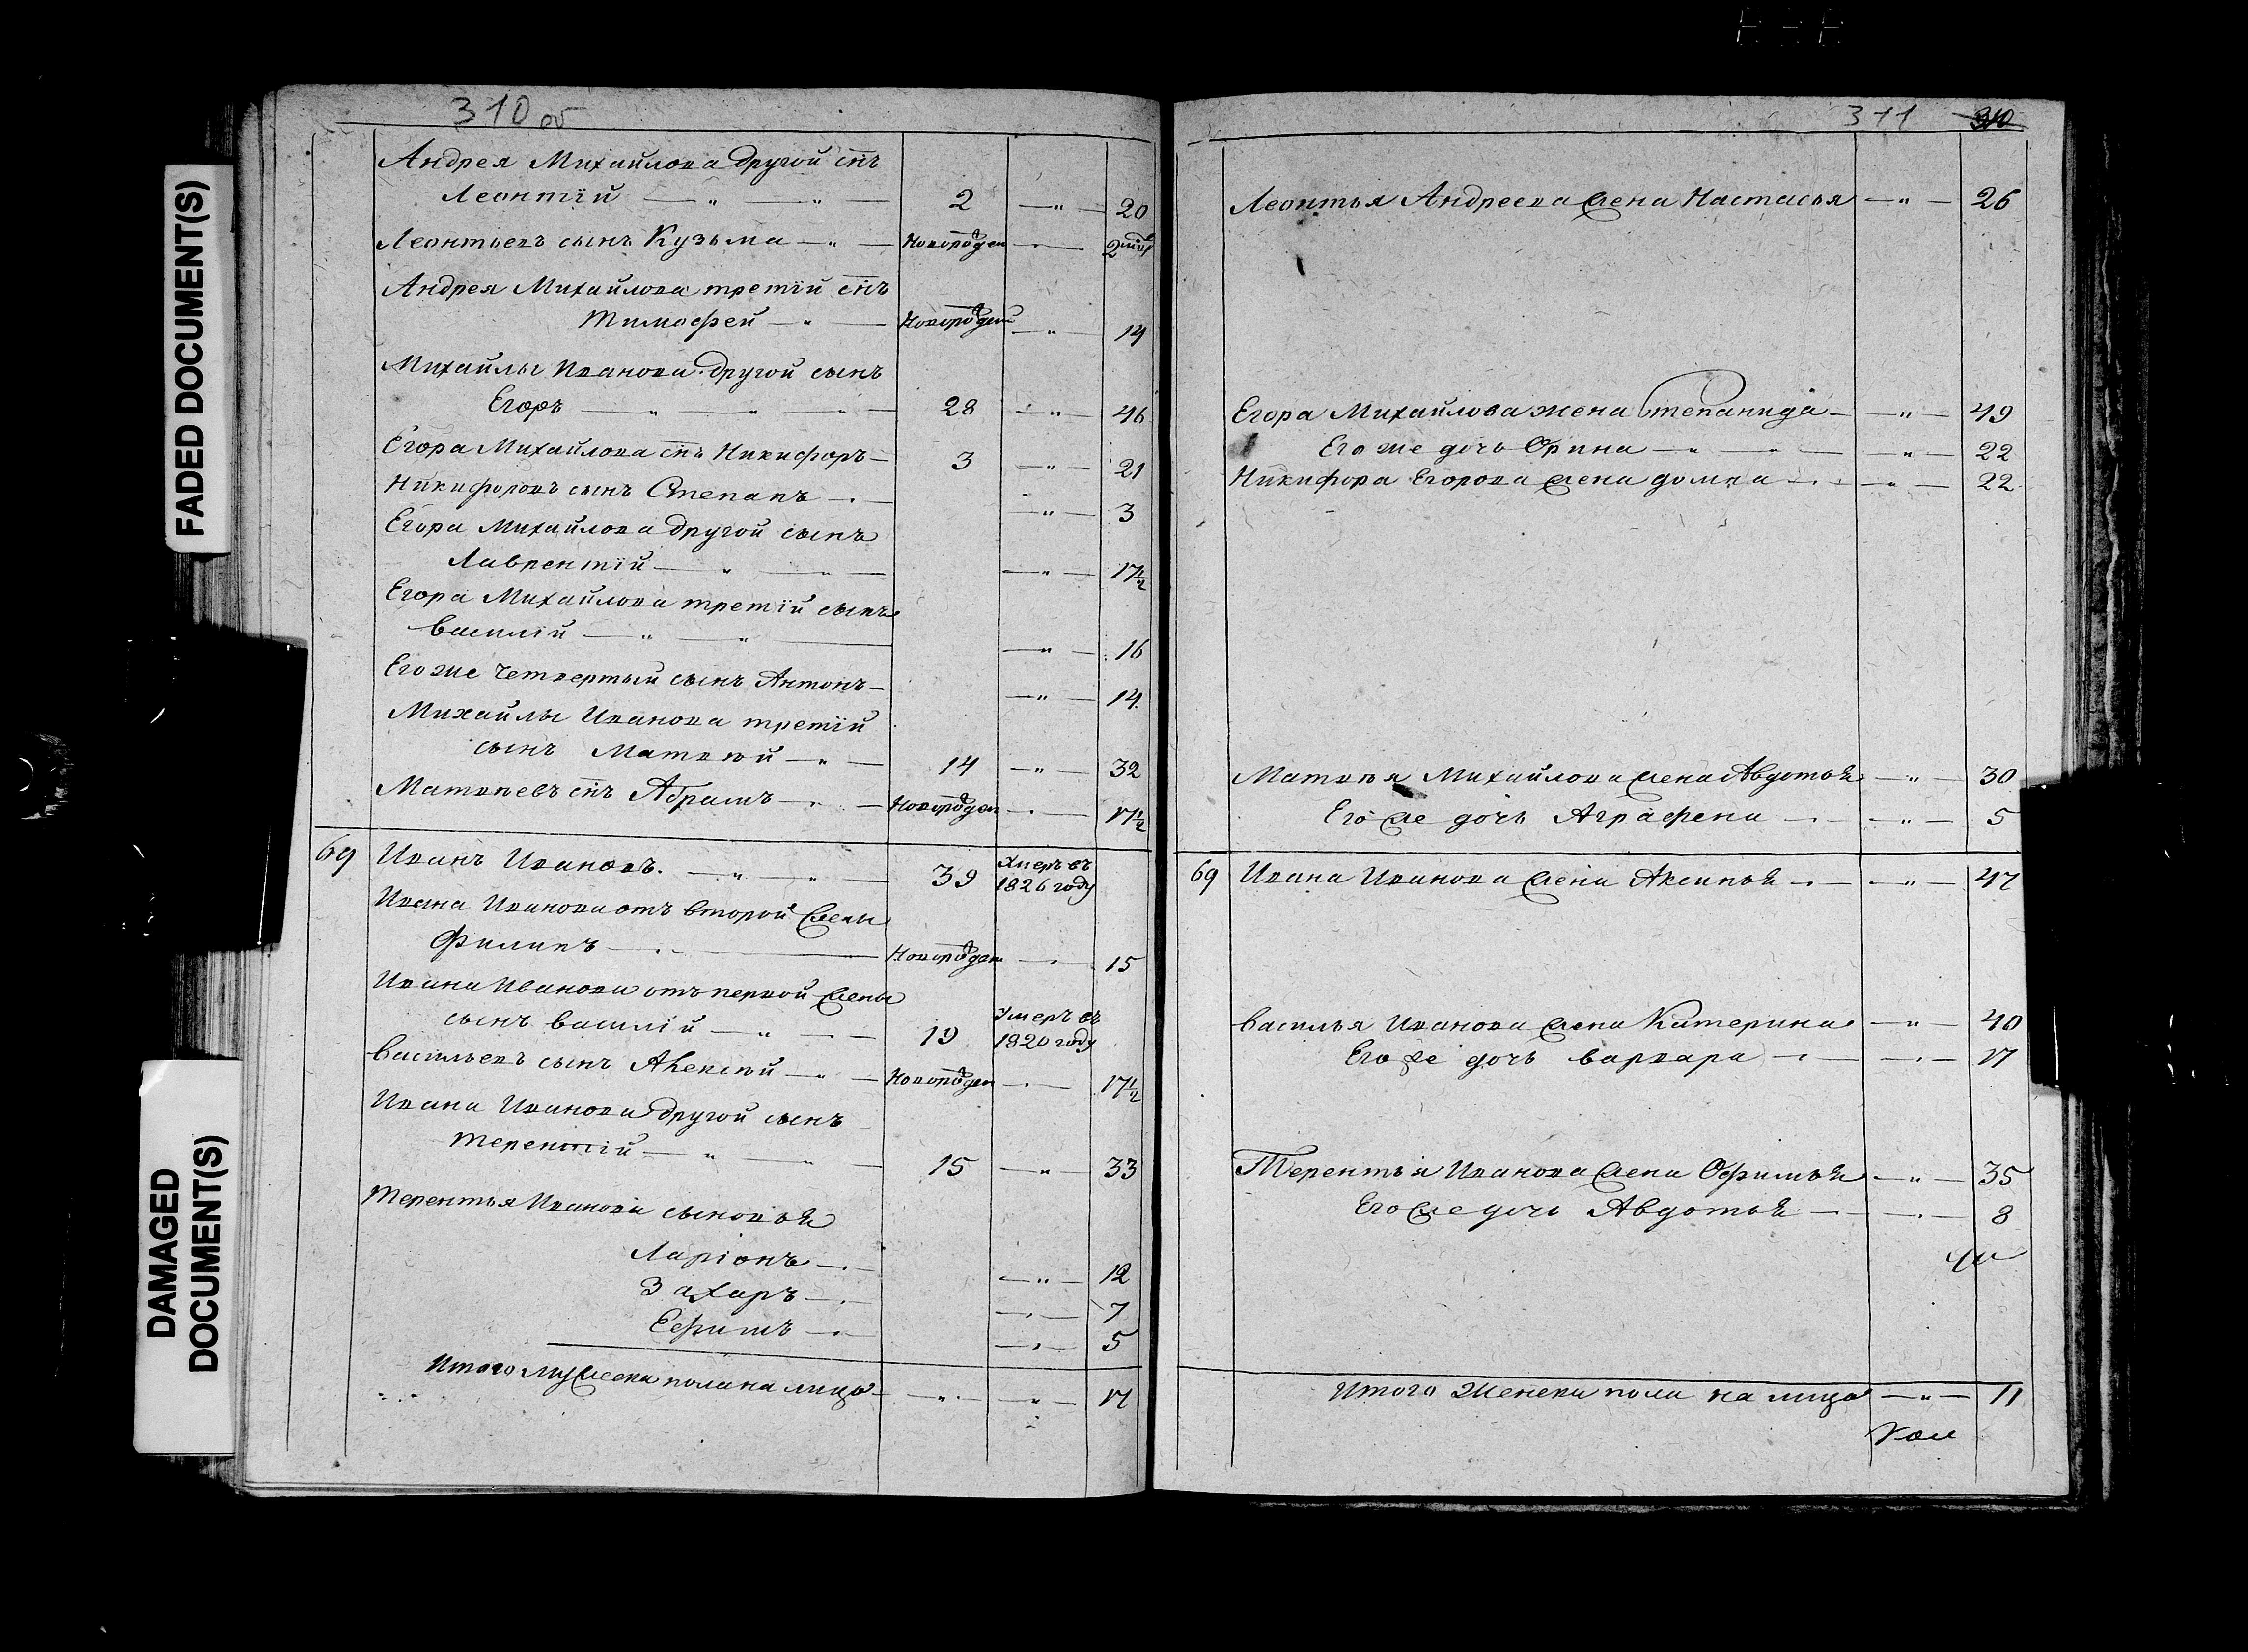 FADED DOCUMENT(S)
DAMAGED DOCUMENT(S)
310 об
Андрея Михайлова другой снъ
Леонтій 2 20
Леонтьевъ сынъ Кузьма новорожден 2 мцъ
Андрея Михайлова третій снъ
Тимофей новорожден 14
Михайлы Иванова другой сынъ
Егоръ 28 46
Егора Михайлова снъ Никифоръ 3 21
Никифоровъ сынъ Степанъ 3
Егора Михайлова другой сынъ
Лаврентій 17½
Егора Михайлова третій сынъ
Василій 16
Его же четвертый сынъ Антонъ 14
Михайлы Иванова третій
сынъ Матвѣй 14 32
Матвѣевъ снъ Абрамъ новорожден 17½
69 Иванъ Ивановъ. 39 Умеръ въ 1826 году
Ивана Иванова отъ второй жены
Филипъ новорожден 15
Ивана Иванова отъ первой жены
сынъ Василій 19 Умеръ въ 1820 году
Васильевъ сынъ Алексѣй новорожден 17½
Ивана Иванова другой сынъ
Терентій 15 33
Терентья Иванова сыновья
Ларіонъ 12
Захаръ 7
Ефимъ 5
Итого мужеска пола на лицо 17
311 310
Леонтья Андреева жена Настасья 26
Егора Михайлова жена Степанида 49
Его же дочь Орина 22
Никифора Егорова жена домна 22
Матвѣя Михайлова жена Авдотья 30
Его же дочь Аграфена 5
69 Ивана Иванова жена Аксинья 47
Василья Иванова жена Катерина 40
Его же дочь варвара 17
Терентья Иванова жена Офимья 35
Его же дочь Авдотья 8
Итого женска пола на лицо 11